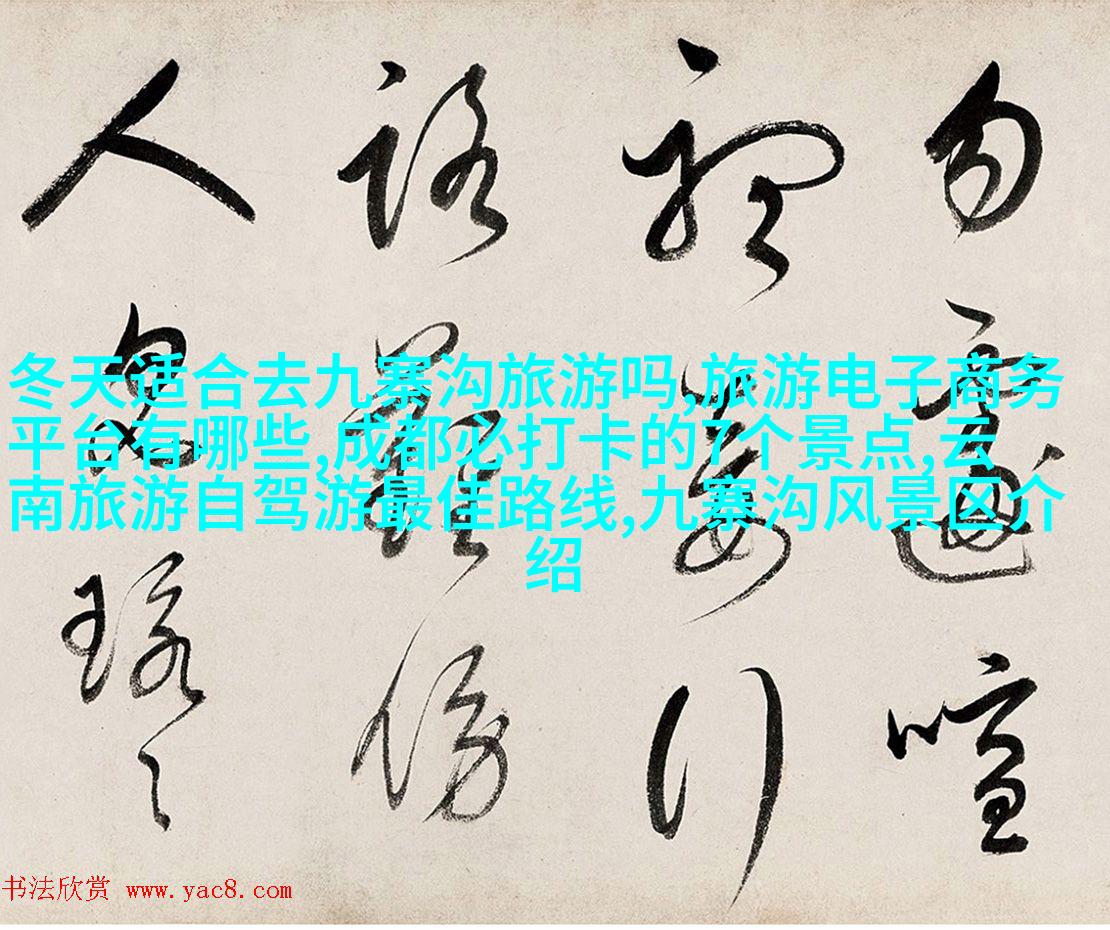 冬天适合去九寨沟旅游吗,旅游电子商务
平台有哪些,成都必打卡的7个景点,云
南旅游自驾游最佳路线,九寨沟风景区介
绍
勿遽喧
行
路難傍
人
书法欣赏 www.yac8.com